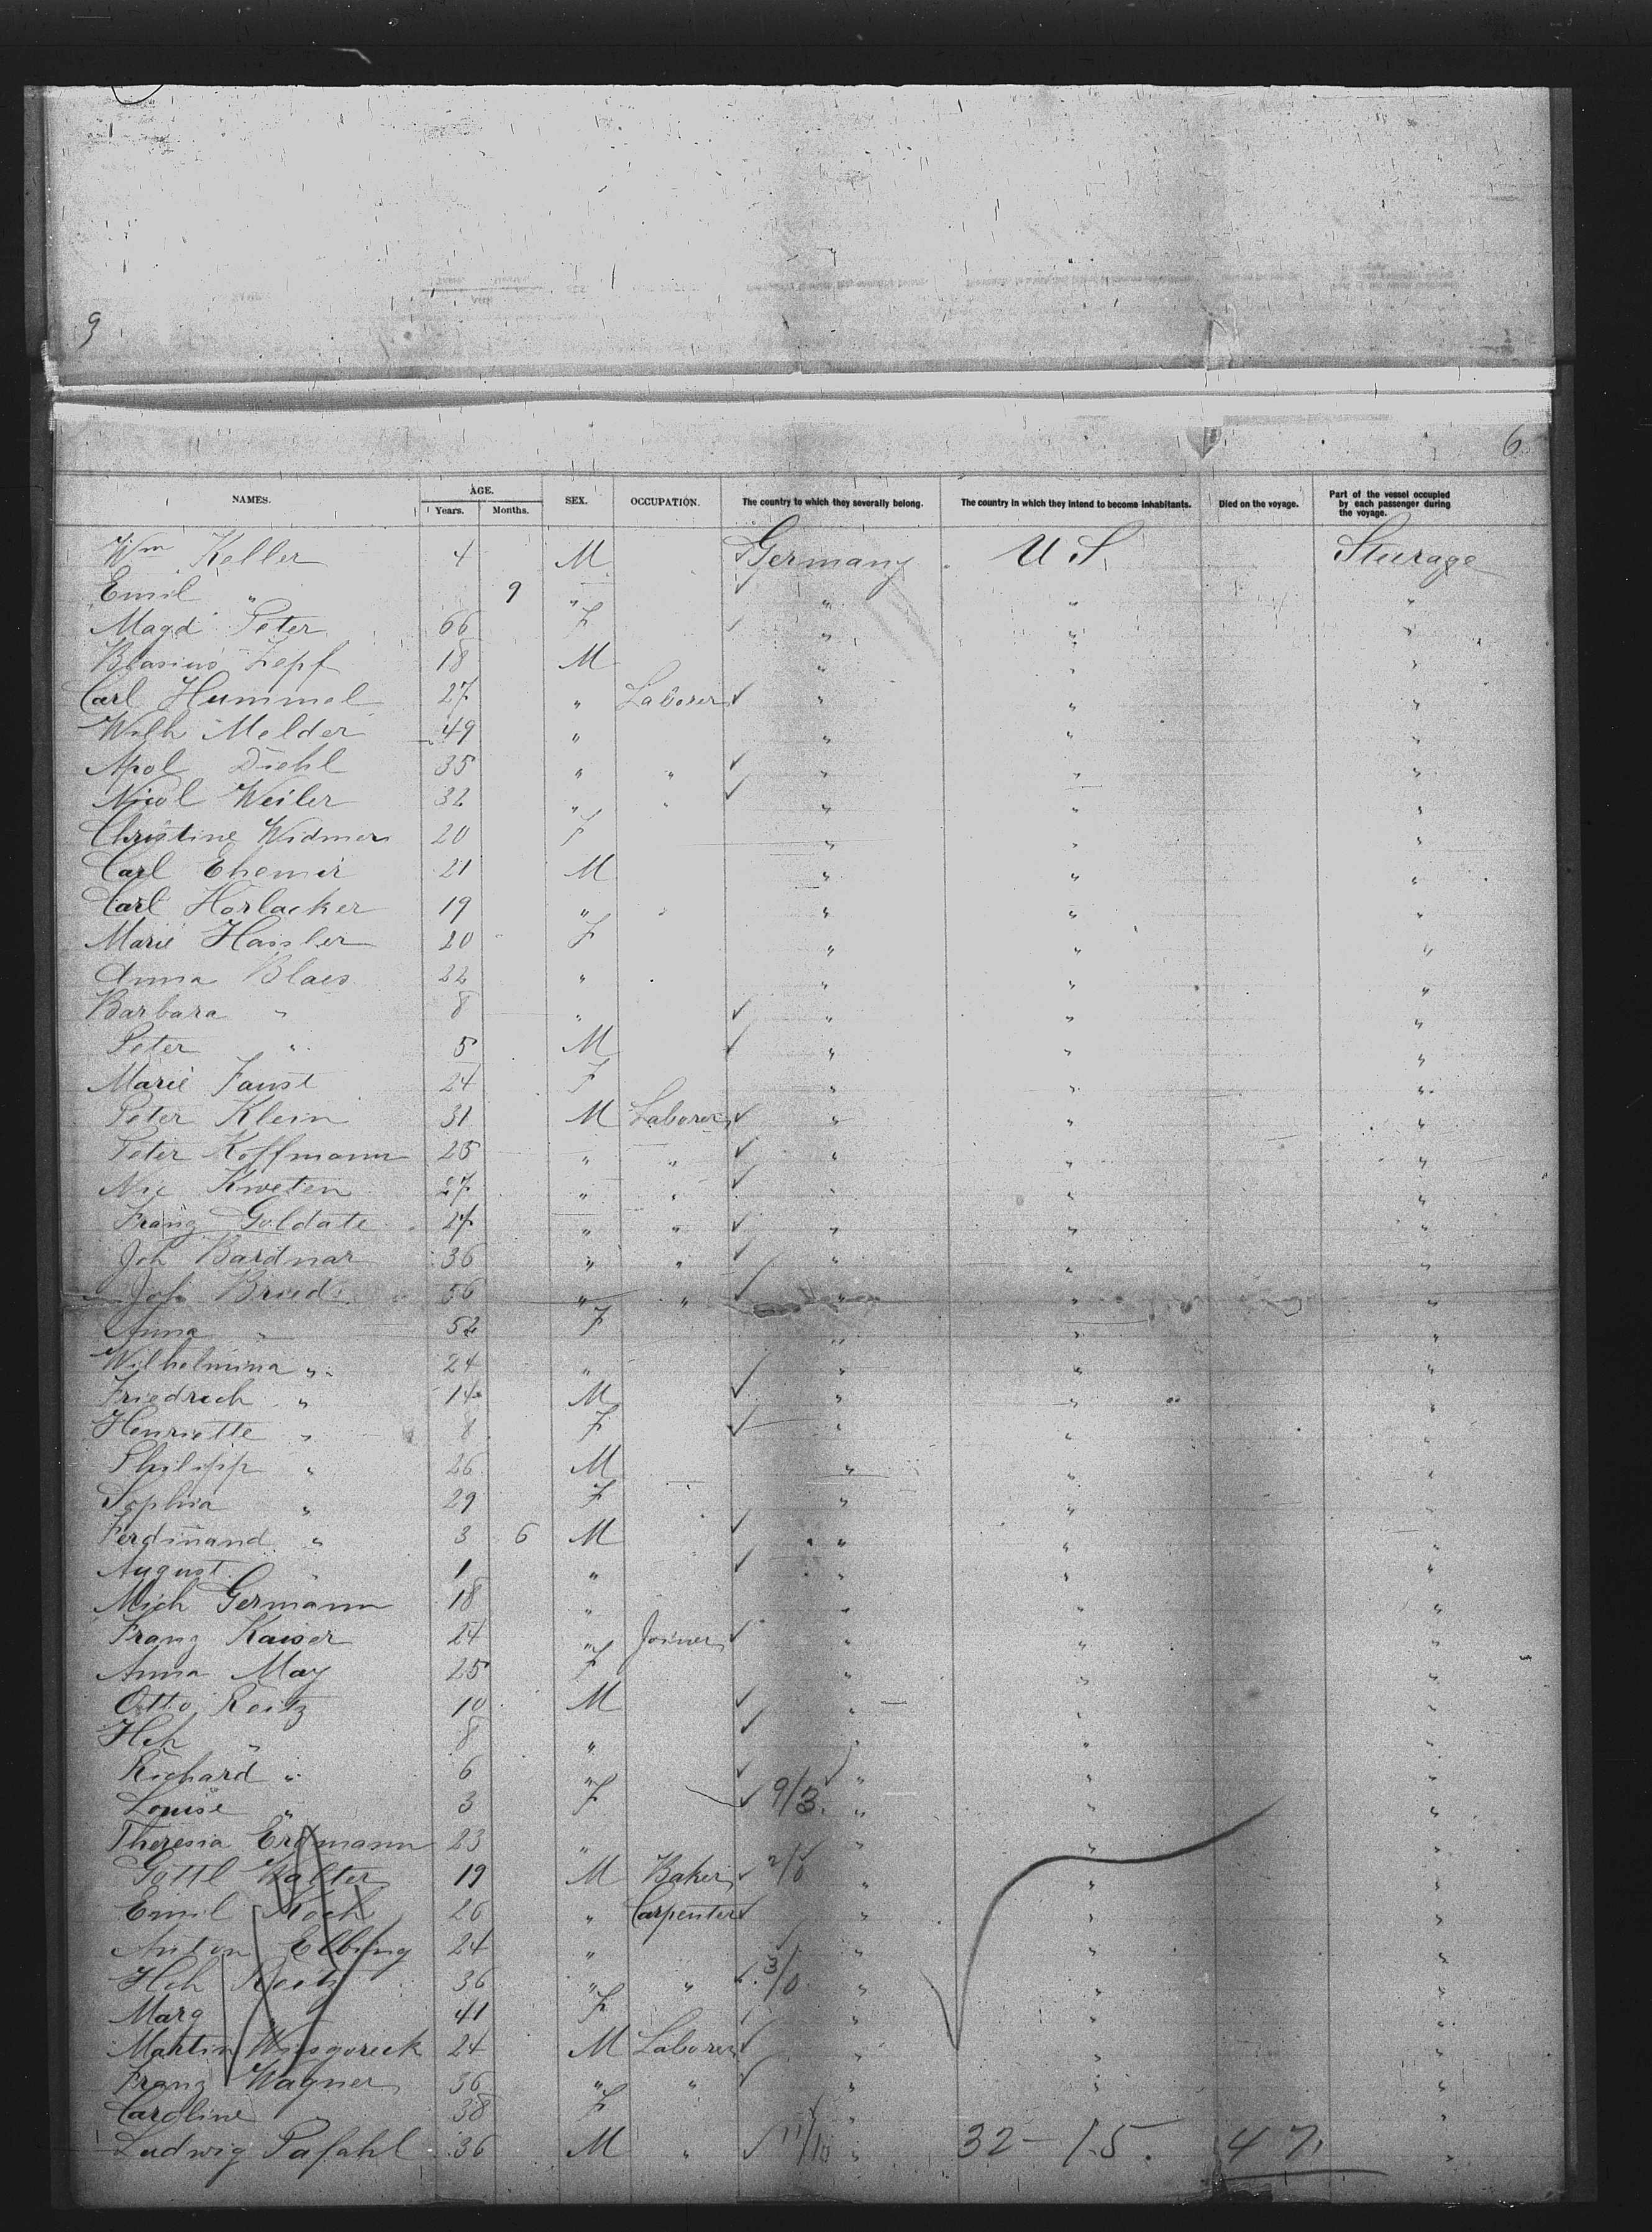 9
6
NAMES. AGE. SEX. OCCUPATION. The country to which they severally belong. The country in which they intend to become inhabitants. Died on the voyage. Part of the vessel occupied by each passenger during the voyage.
Years. Months.
Wm Keller 4 M Germany U S. Steerage
Emil " 9 " " " "
Magd Peter 66 F " " "
Blasius Zepf 18 M " " "
Carl Hummel 27 " Laborer " " "
Wilh Melder 49 " " " "
Apol Diehl 35 " " " " "
Nicol Weiler 32 " " " " "
Christine Widmer 20 F " " "
Carl Ehemir 21 M " " "
Carl Horlacker 19 " " " "
Marie Haissler 20 F " " "
Anna Blaes 22 " " " "
Barbara " 8 " " " "
Peter " 5 M " " "
Marie Faust 24 F " " "
Peter Klein 31 M Laborer " " "
Peter Koffmann 25 " " " " "
Nic Kweten 27 " " " " "
Franz Goldate 27 " " " " "
Joh Bardnar 36 " " " " "
Joh 56 " " " " "
Anna " 52 F " " "
Wilhelmina " 24 " " " "
Friedrich " 14 M " " "
Henriette " 8 F " " "
Philipp " 26 M " " "
Sophia " 29 F " " "
Ferdinand " 3 6 M " " "
August " 1 " " " "
Mich Germann 18 " " " "
Franz Kaiser 24 " Joiner " " "
Anna May 25 F " " "
Otto Reitz 10 M " " "
Hch " 8 " " " "
Richard " 6 " " " "
Louise " 3 F 9/3. " " "
Theresia Erdmann 23 " " " "
Gottl Walter 19 M Baker 2/0 " " "
Emil Koch 26 " Carpenter " " "
Anton Elbing 24 " " " "
Hch Reitz 36 " " 3/0 " " "
Marg 41 F " " "
Martin Wiesgoreck 24 M Laborer " " "
Franz Wagner 36 " " " " "
Caroline " 38 F " " "
Ludwig Pafahl 36 M " 11/10 " 32-15. 47. "